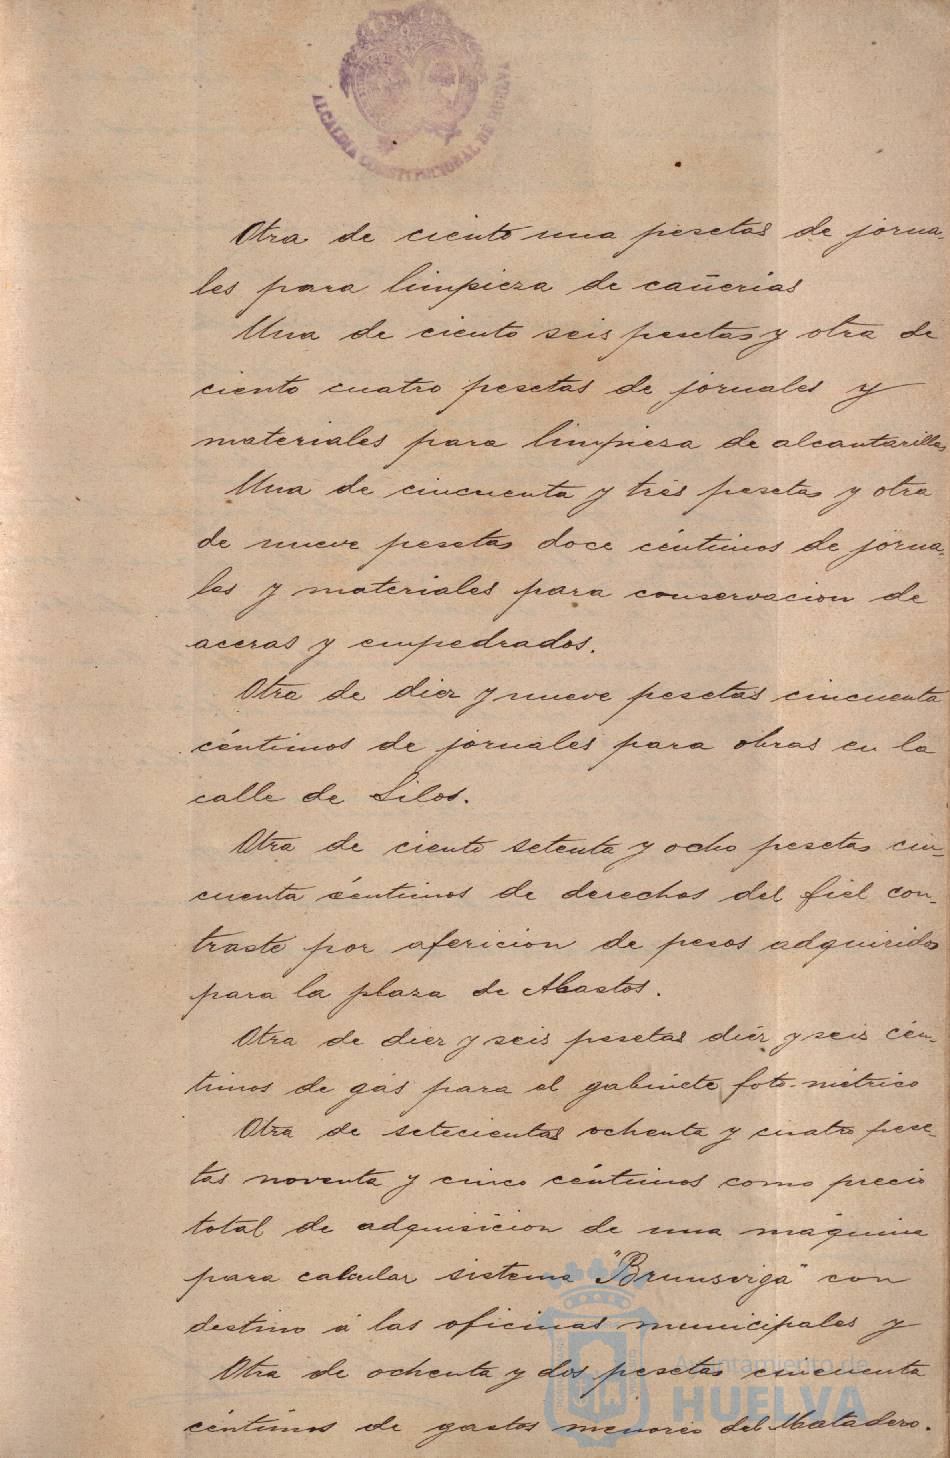 ALCALDIA CONSTITUCIONAL DE HUELVA
Otra de ciento una pesetas de jorna-
les para limpieza de cañerias
Una de ciento seis pesetas y otra de
ciento cuatro pesetas de jornales y
materiales para limpieza de alcantarillas
Una de cincuenta y tres pesetas y otra
de nueve pesetas doce céntimos de jorna-
les y materiales para conservacion de
aceras y empedrados.
Otra de diez y nueve pesetas cincuenta
céntimos de jornales para obras en la
calle de Silos.
Otra de ciento setenta y ocho pesetas cin-
cuenta céntimos de derechos del fiel con-
traste por afericion de pesos adquiridos
para la plaza de Abastos.
Otra de diez y seis pesetas diez y seis cén-
timos de gas para el gabinete foto-métrico
Otra de setecientas ochenta y cuatro pese-
tas noventa y cinco céntimos como precio
total de adquisicion de una máquina
para calcular sistema "Brunsviga" con
destino á las oficinas municipales y
Otra de ochenta y dos pesetas cincuenta
céntimos de gastos menores del Matadero.
Ayuntamiento de
HUELVA